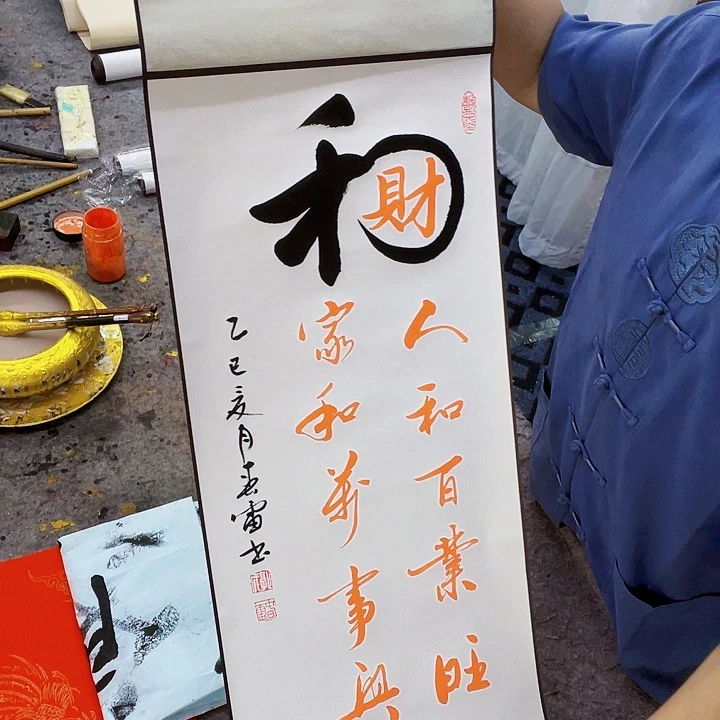 和
財
人和百業旺
家和萬事興
乙巳夏月春雷书